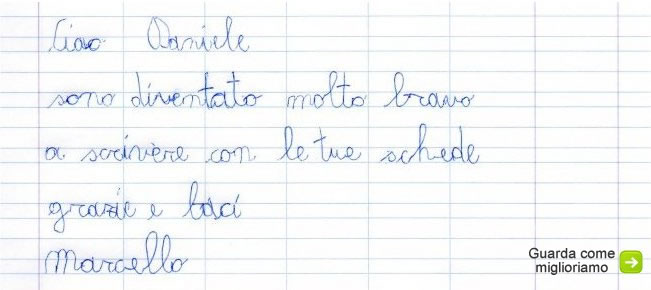 Ciao Daniele
sono diventato molto bravo
a scrivere con le tue schede
grazie e baci
Marcello
Guarda come
miglioriamo